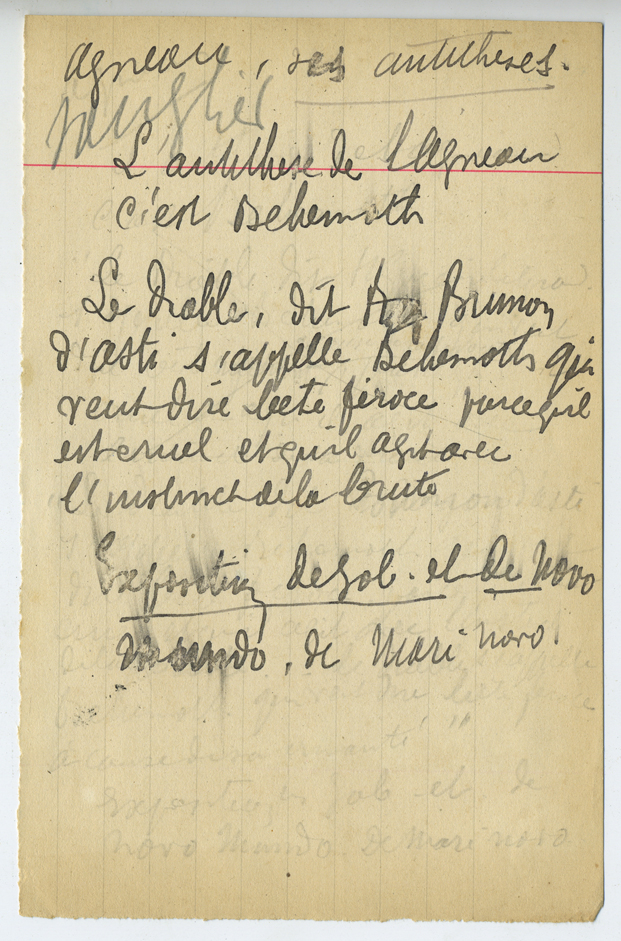 agneau, ses antithèses.
sanglier
L'antithese de l'Agneau
c'est Behemoth
Le Diable, dit Brunon
d'asti s'appelle Behemoth qui
veut dire bete feroce parcequil
est cruel et quil agit avec
l'instinct de la brute
Exposition de Job. et de Novo
mundo, de Mari novo.